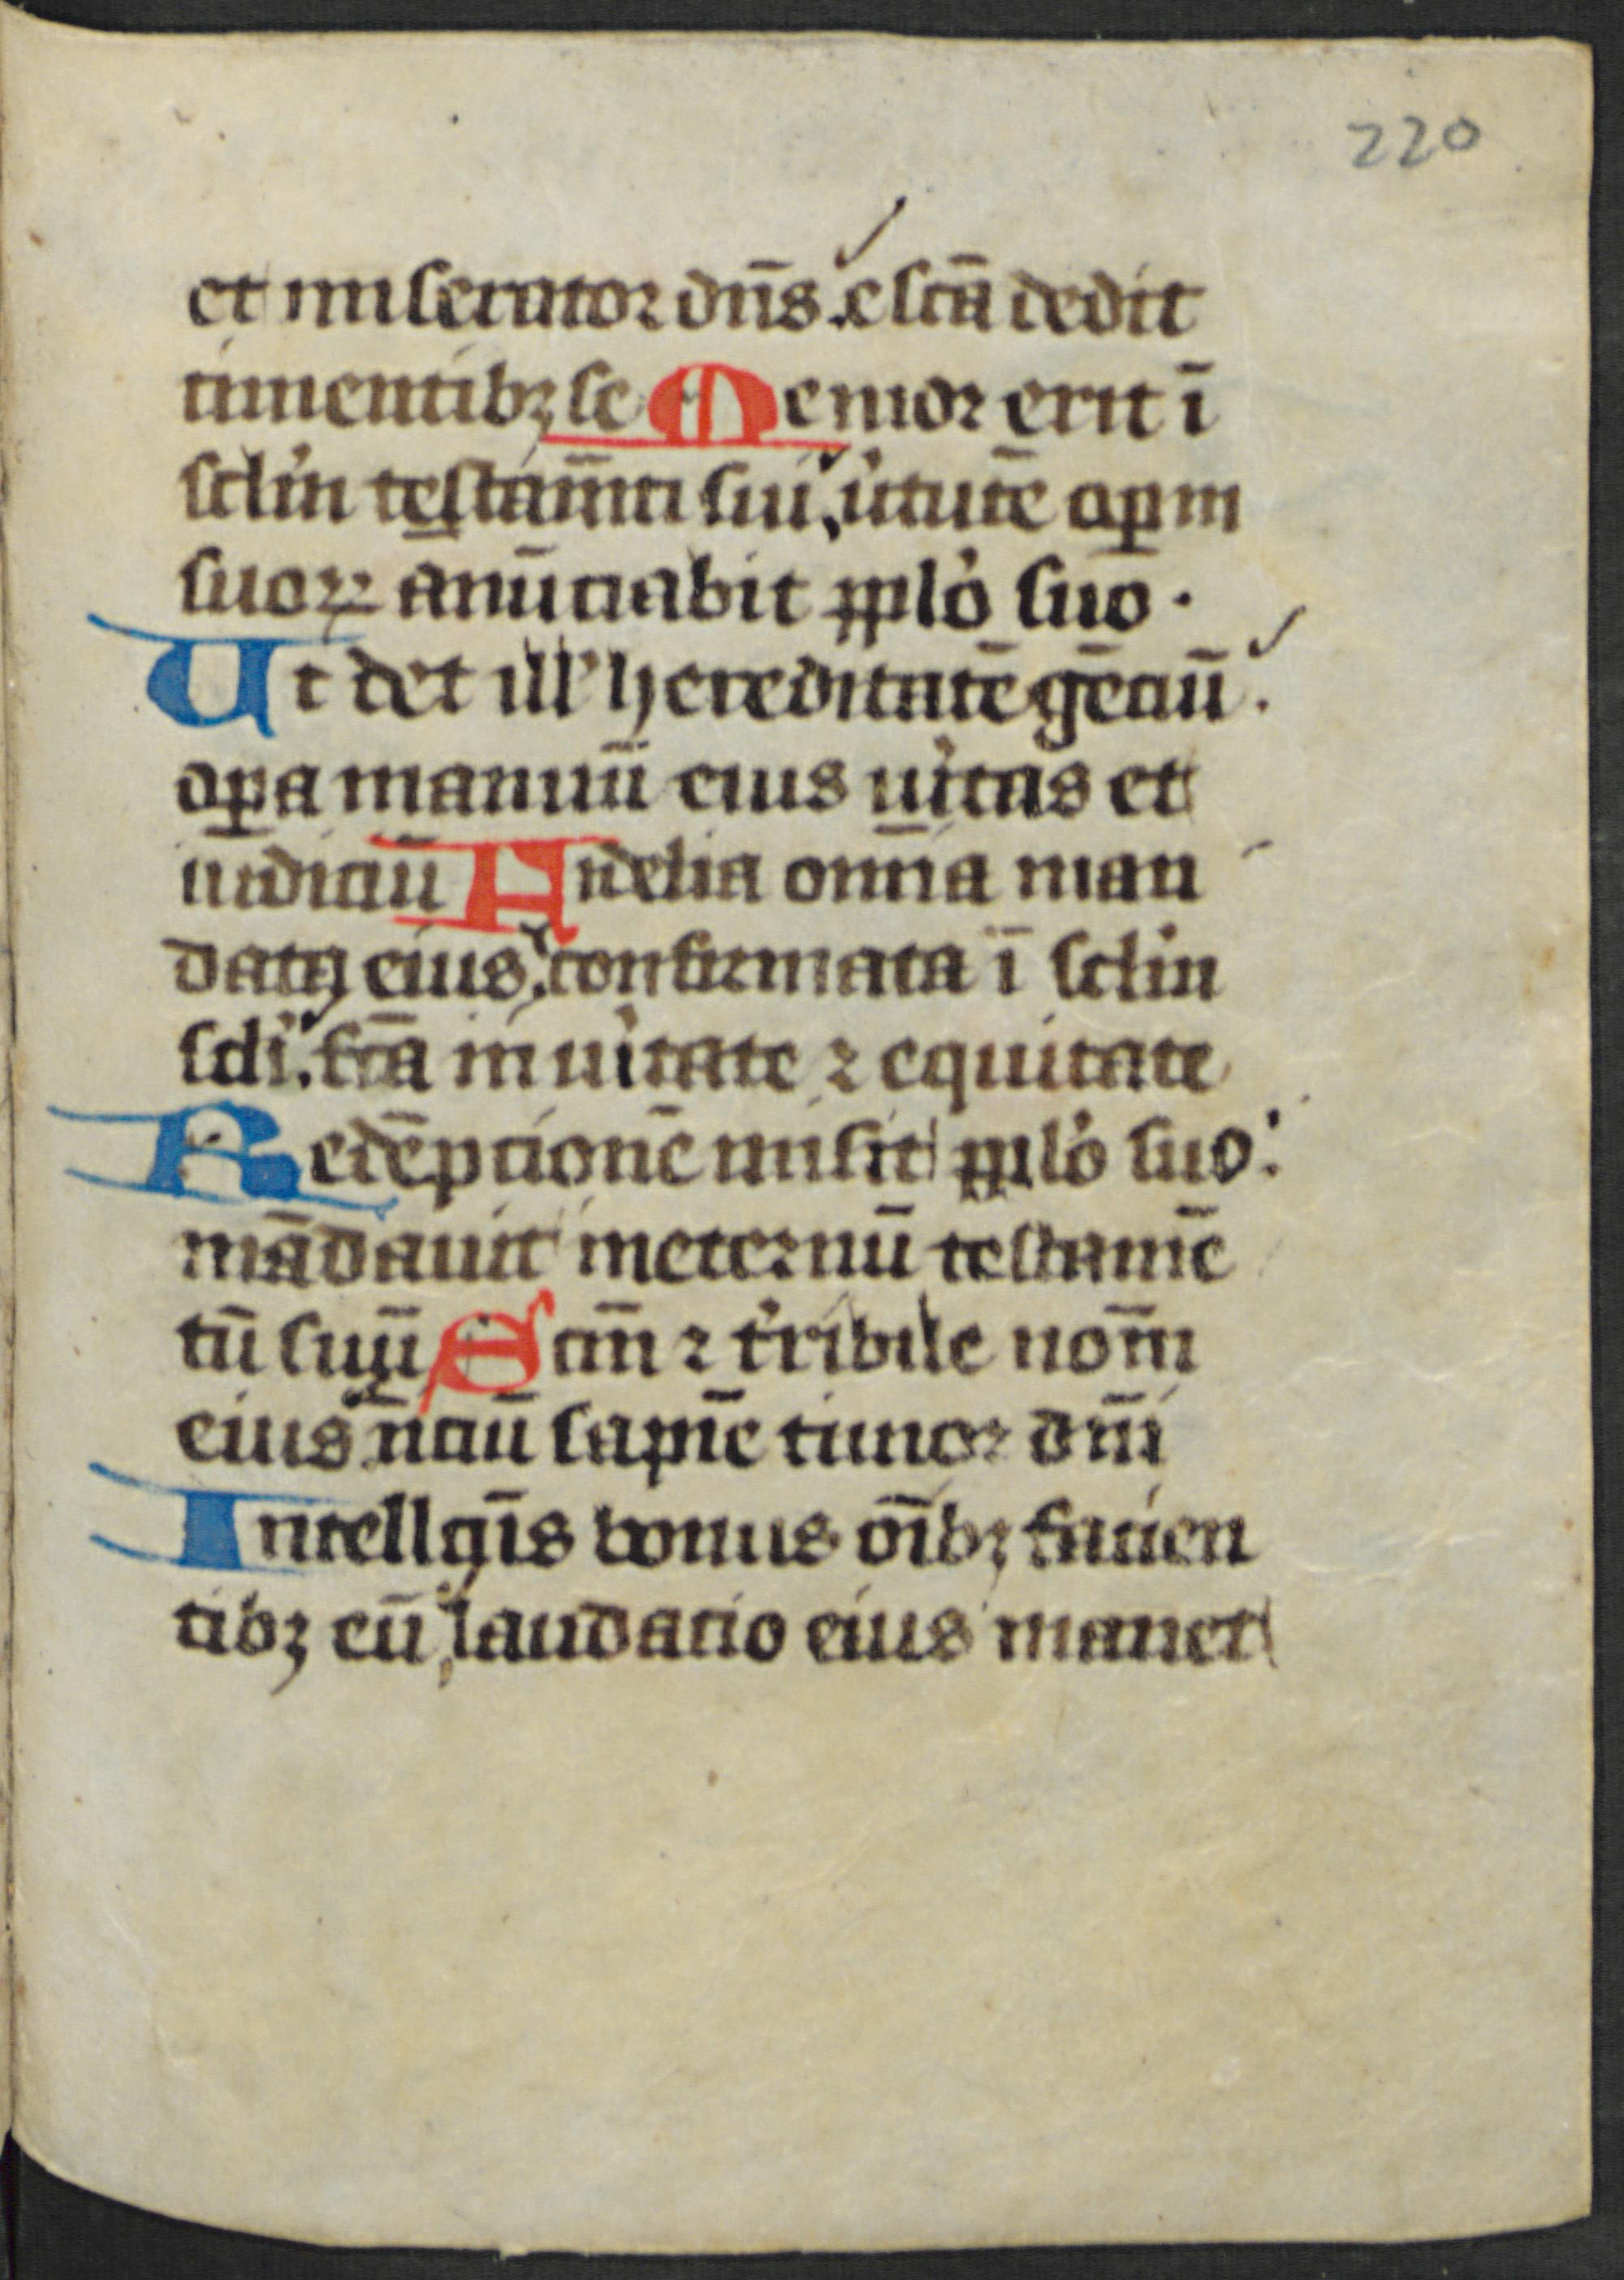 220
et miserator dn̄s. escā dedit
timentibꝫ se Memor erit ī
sclm̄ testam̄ti sui. u̓tutē oꝑm
suoꝝ ānūciabit pplo̓ suo.
Ut det ill̓ hereditatē gēciū.
oꝑa manuū eius uı̓tas et
iudiciū Fidelia om̄ia man
data eius. confirmata ī sclm̄
scl̓i. fc̄a in uı̓tate ⁊ equitate
Redēpcionē misit pplo̓ suo.
mādauit ineternū testamē
tū suū Scm̄ ⁊ t̓ribile nom̄
eius īiciū sapīe timor dn̄i
Intellc̄īs bonus oı̄bꝫ facien
tibꝫ eū, laudacio eius manet